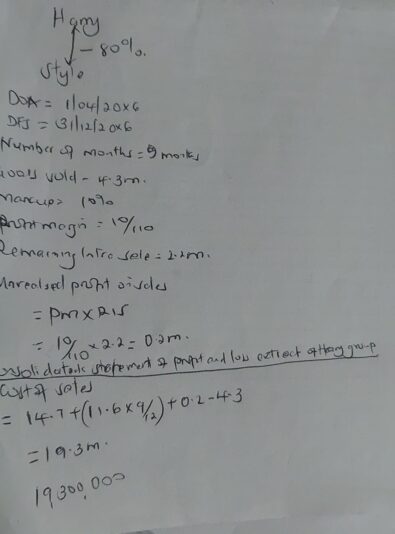 Harry
- 80%.
Style
DOA = 1/04/20x6
DFS = 31/12/20x6
Number of months = 9 months
Goods sold - 4.3m.
markup = 10%
profit margin = 10/110
Remaining Intra sale = 2.2m.
Unrealised profit on sales
= pm x RIS
= 10/110 x 2.2 = 0.2m.
Consolidated statement of profit and loss extract of Harry group
Cost of sales
= 14.7 + (11.6 x 9/12) + 0.2 - 4.3
= 19.3m.
19300,000